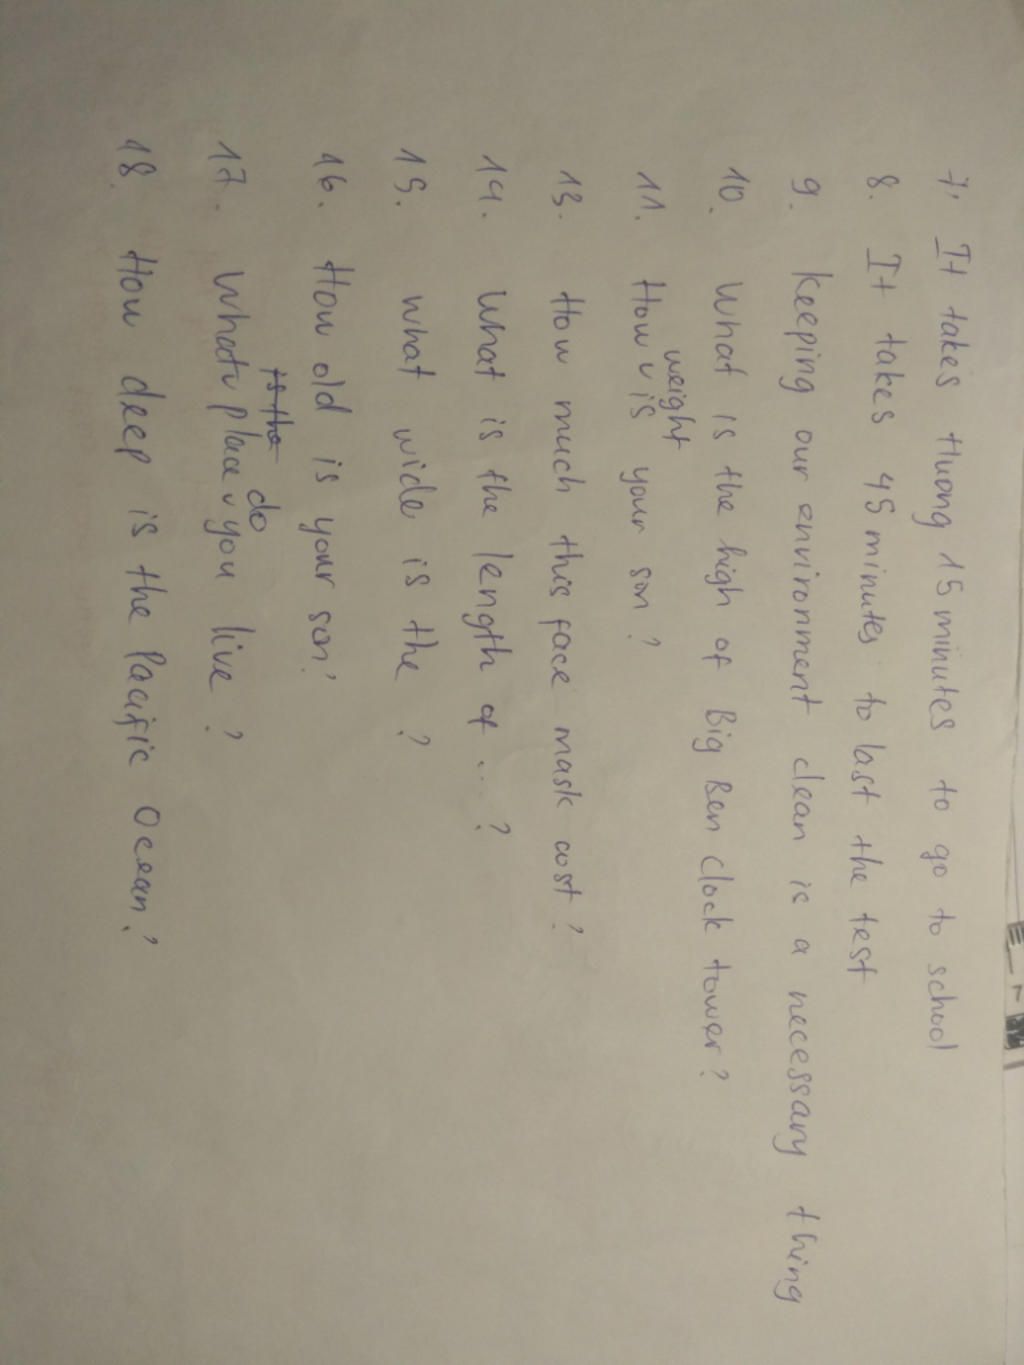 7. It takes Huong 15 minutes to go to school
8. It takes 45 minutes to last the test
9. Keeping our environment clean is a necessary thing
10. What is the high of Big Ben clock tower?
11. How weight is your son?
13. How much this face mask cost?
14. What is the length of ... ?
15. What wide is the ?
16. How old is your son?
17. What place do you live ?
18. How deep is the Pacific Ocean?